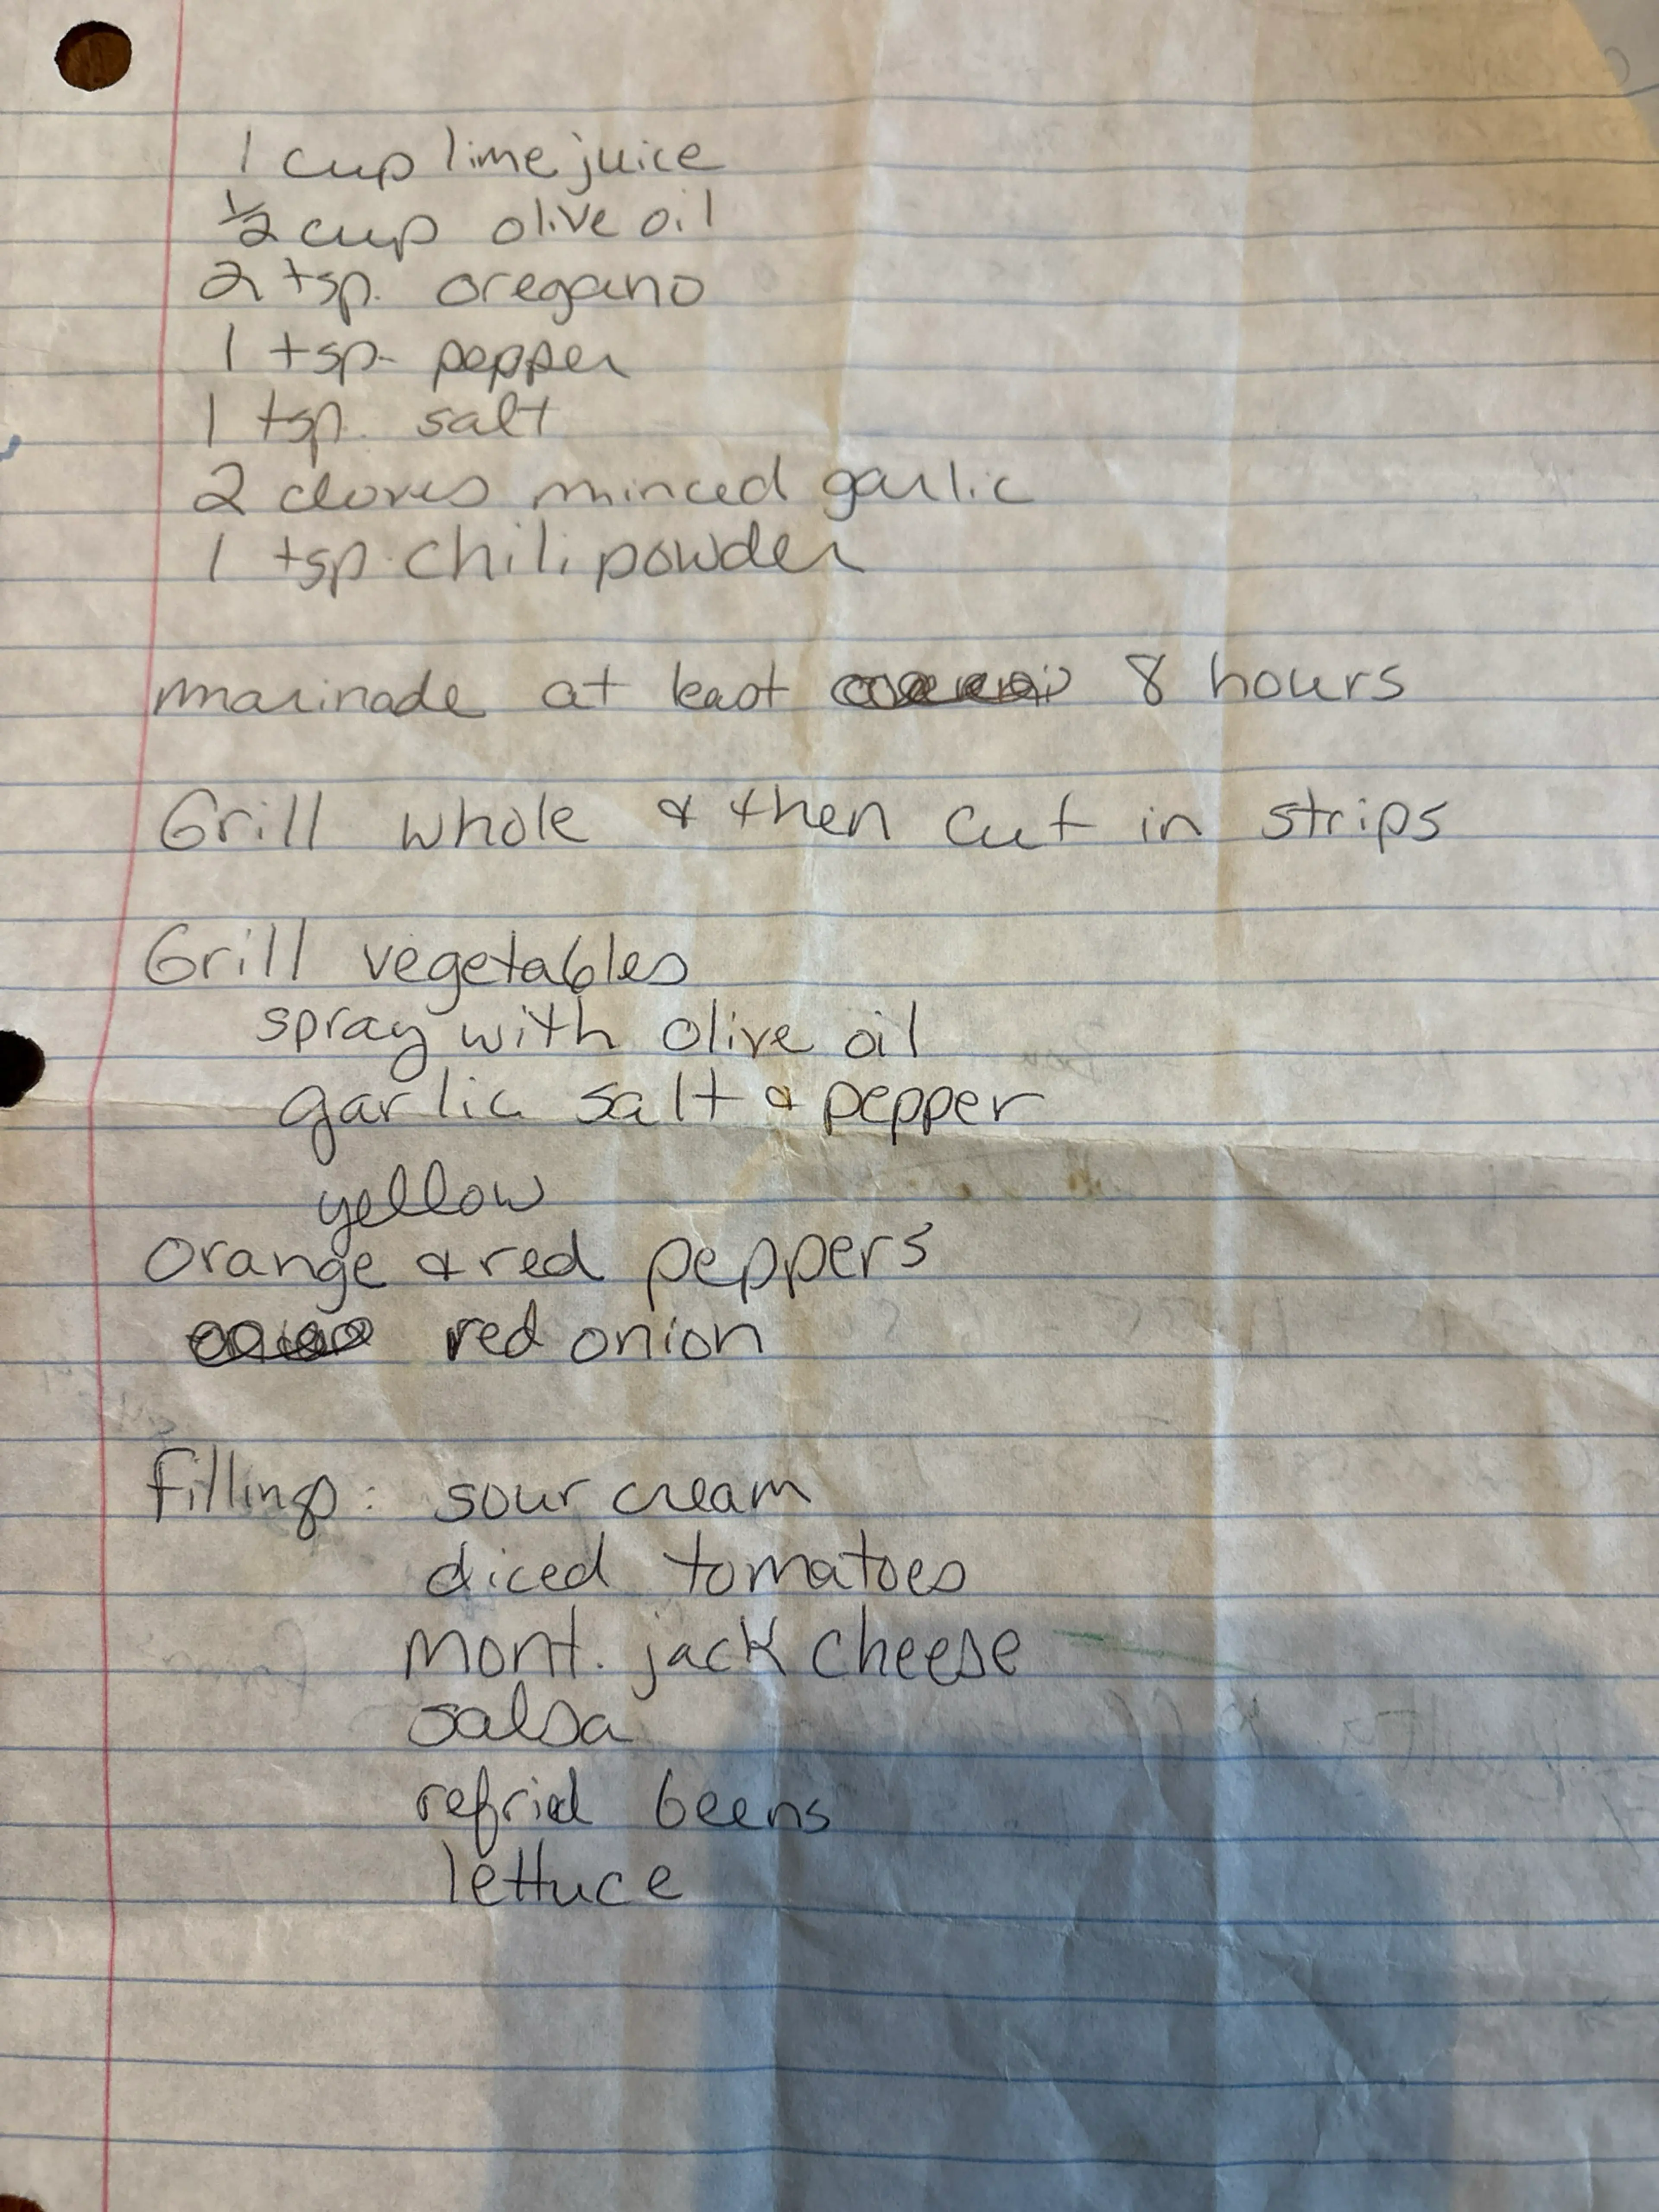 1 cup lime juice
½ cup olive oil
2 tsp. oregano
1 tsp. pepper
1 tsp. salt
2 cloves minced garlic
1 tsp. chili powder
marinade at least 8 hours
Grill whole & then cut in strips
Grill vegetables
spray with olive oil
garlic salt & pepper
yellow
orange & red peppers
red onion
fillings: sour cream
diced tomatoes
mont. jack cheese
salsa
refried beens
lettuce